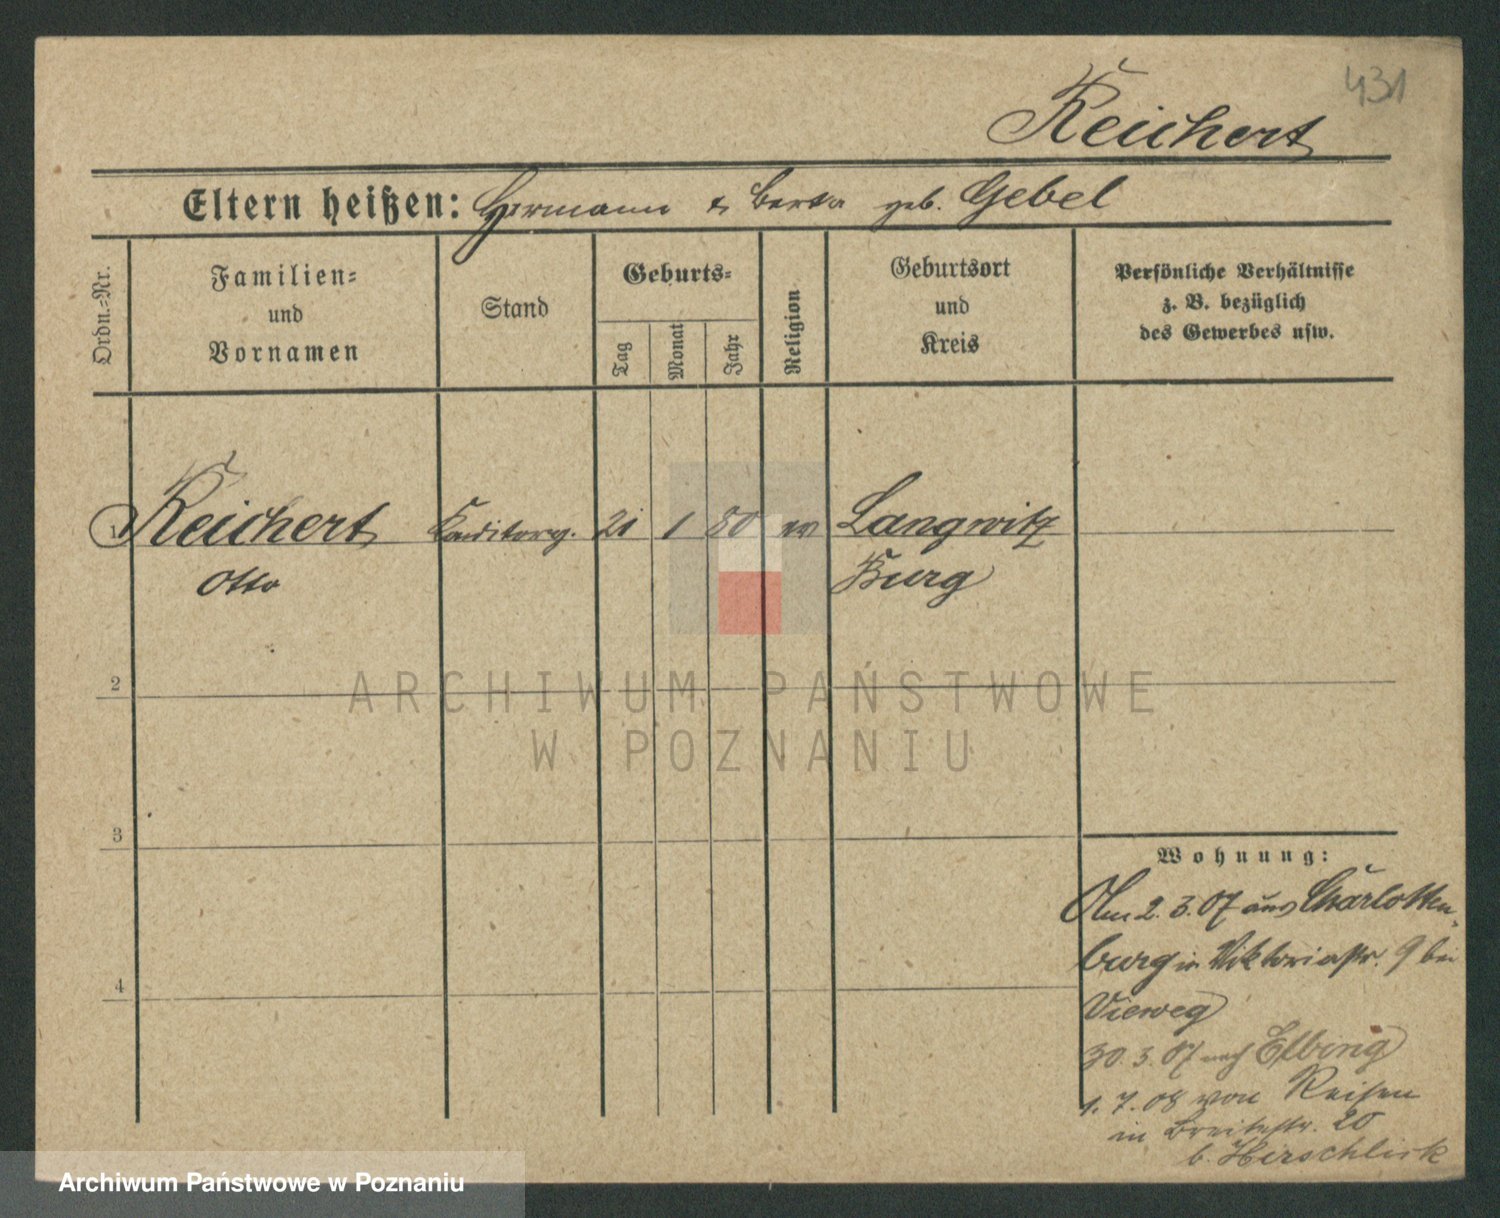 431
Reichert
Eltern heißen: Hermann & Berta geb. Gebel
Ordn.-Nr.
Familien-
und
Vornamen
Stand
Geburts-
Tag
Monat
Jahr
Religion
Geburtsort
und
Kreis
Persönliche Verhältnisse
z. B. bezüglich
des Gewerbes usw.
1 Reichert Conditorg. 21 1 80 ev Langwitz
Otto
Burg
2
3
4
Wohnung:
Am 2.3.07 aus Charlotten-
burg in Viktoriastr. 9 bei
Vieweg
30.3.07 nach Elbing
1.7.08 von Reisen
in Breitestr. 20
b. Hirschlik
ARCHIWUM PAŃSTWOWE
W POZNANIU
Archiwum Państwowe w Poznaniu